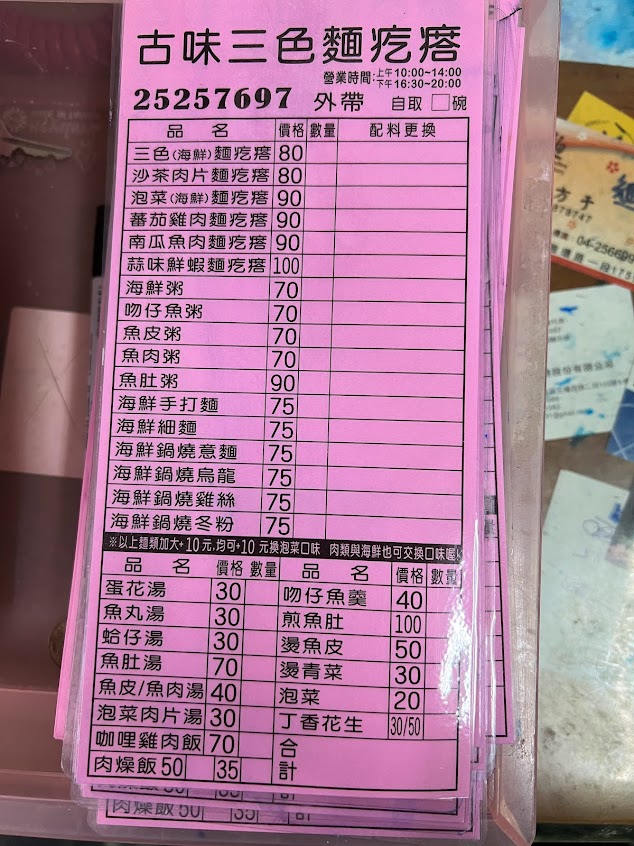 古味三色麵疙瘩
營業時間:上午10:00~14:00
下午16:30~20:00
25257697 外帶 自取 □碗
品名 價格 數量 配料更換
三色(海鮮)麵疙瘩 80
沙茶肉片麵疙瘩 80
泡菜(海鮮)麵疙瘩 90
蕃茄雞肉麵疙瘩 90
南瓜魚肉麵疙瘩 90
蒜味鮮蝦麵疙瘩 100
海鮮粥 70
吻仔魚粥 70
魚皮粥 70
魚肉粥 70
魚肚粥 90
海鮮手打麵 75
海鮮細麵 75
海鮮鍋燒意麵 75
海鮮鍋燒烏龍 75
海鮮鍋燒雞絲 75
海鮮鍋燒冬粉 75
※以上麵類加大+10元,均可+10元換泡菜口味 肉類與海鮮也可交換口味喔
品名 價格 數量 品名 價格 數量
蛋花湯 30 吻仔魚羹 40
魚丸湯 30 煎魚肚 100
蛤仔湯 30 燙魚皮 50
魚肚湯 70 燙青菜 30
魚皮/魚肉湯 40 泡菜 20
泡菜肉片湯 30 丁香花生 30/50
咖哩雞肉飯 70 合
肉燥飯 50 35 計
肉燥飯 50 35 計
方子
04-25669
股份有限公司